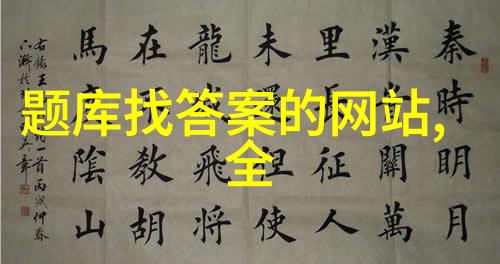 题库找答案的网站,
全
秦時明月
漢關萬
里長征人
未還但使
龍飛將
在教胡
馬陰山
右錄王
首丙戌仲春